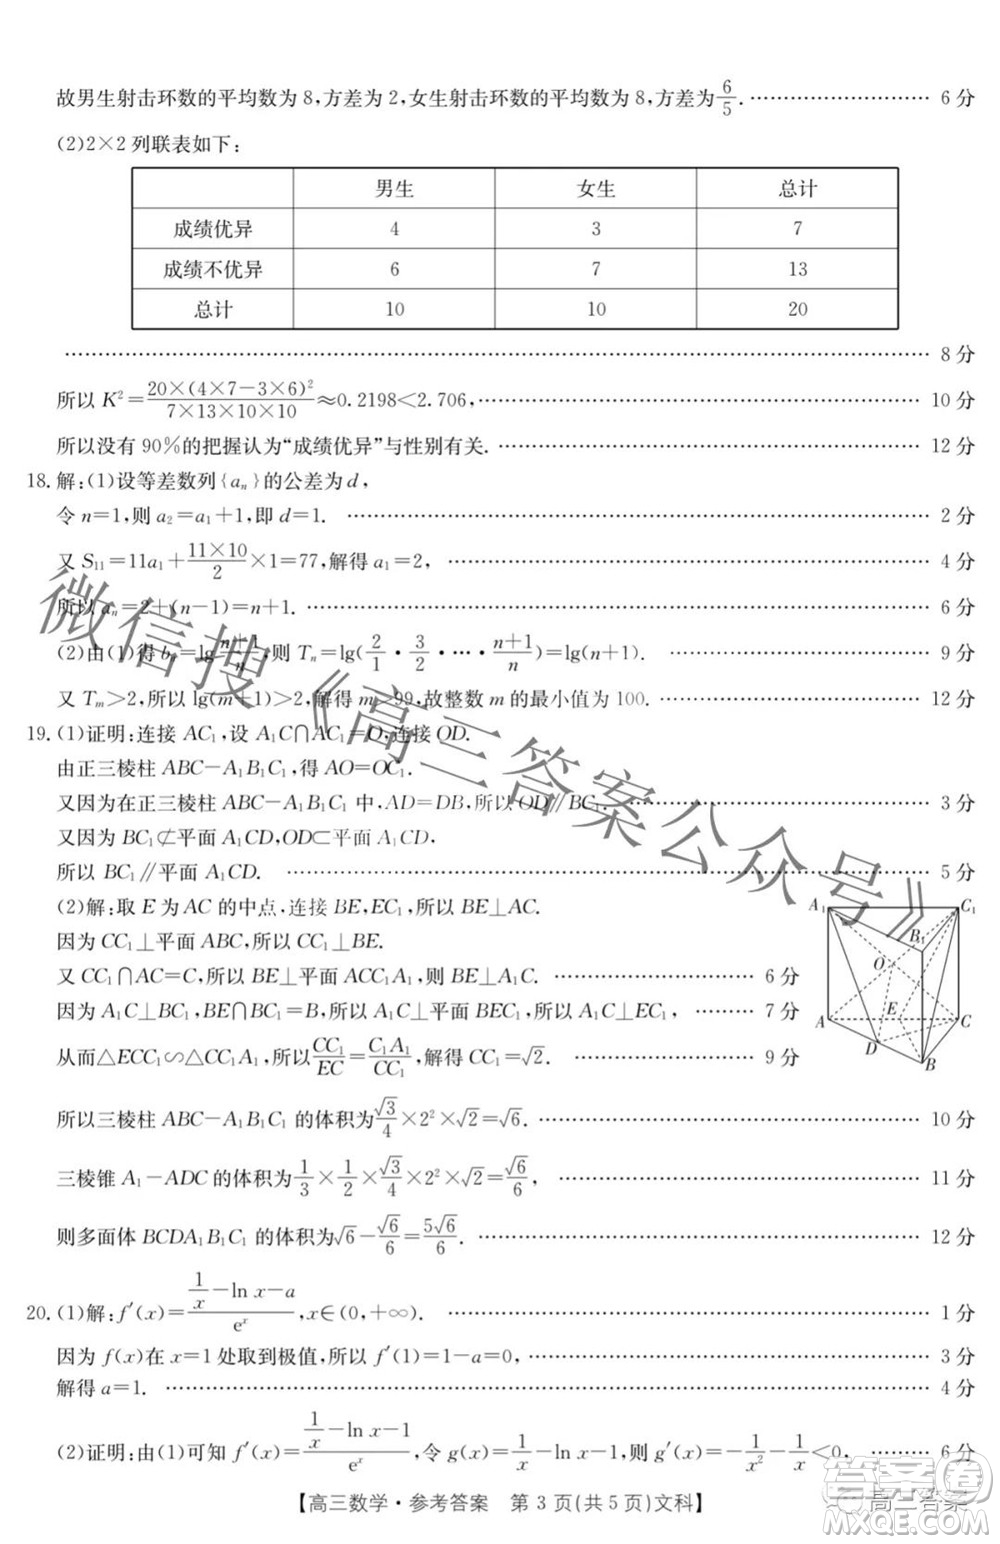 故男生射击环数的平均数为8,方差为2,女生射击环数的平均数为8,方差为6/5. …… 6分
(2)2×2列联表如下:
男生 女生 总计
成绩优异 4 3 7
成绩不优异 6 7 13
总计 10 10 20
…… 8分
所以K²=20×(4×7−3×6)²/(7×13×10×10)≈0.2198<2.706, …… 10分
所以没有90%的把握认为“成绩优异”与性别有关. …… 12分
18.解:(1)设等差数列{aₙ}的公差为d,
令n=1,则a₂=a₁+1,即d=1. …… 2分
又S₁₁=11a₁+(11×10)/2×1=77,解得a₁=2, …… 4分
所以aₙ=2+(n−1)=n+1. …… 6分
(2)由(1)得bₙ=lg (n+1)/n,则Tₙ=lg(2/1·3/2·…·(n+1)/n)=lg(n+1). …… 9分
又Tₘ>2,所以lg(m+1)>2,解得m>99,故整数m的最小值为100. …… 12分
19.(1)证明:连接AC₁,设A₁C∩AC₁=O,连接OD.
由正三棱柱ABC−A₁B₁C₁,得AO=OC₁.
又因为在正三棱柱ABC−A₁B₁C₁中,AD=DB,所以OD∥BC₁. …… 3分
又因为BC₁⊄平面A₁CD,OD⊂平面A₁CD,
所以BC₁∥平面A₁CD. …… 5分
(2)解:取E为AC的中点,连接BE,EC₁,所以BE⊥AC.
因为CC₁⊥平面ABC,所以CC₁⊥BE.
又CC₁∩AC=C,所以BE⊥平面ACC₁A₁,则BE⊥A₁C. …… 6分
因为A₁C⊥BC₁,BE∩BC₁=B,所以A₁C⊥平面BEC₁,所以A₁C⊥EC₁, …… 7分
从而△ECC₁∽△CC₁A₁,所以CC₁/EC=C₁A₁/CC₁,解得CC₁=√2. …… 9分
A₁ C₁ B₁ O A E C D B
所以三棱柱ABC−A₁B₁C₁的体积为√3/4×2²×√2=√6. …… 10分
三棱锥A₁−ADC的体积为1/3×1/2×√3/4×2²×√2=√6/6, …… 11分
则多面体BCDA₁B₁C₁的体积为√6−√6/6=5√6/6. …… 12分
20.(1)解:f′(x)=(1/x−ln x−a)/eˣ,x∈(0,+∞). …… 1分
因为f(x)在x=1处取到极值,所以f′(1)=1−a=0, …… 3分
解得a=1. …… 4分
(2)证明:由(1)可知f′(x)=(1/x−ln x−1)/eˣ,令g(x)=1/x−ln x−1,则g′(x)=−1/x²−1/x<0, …… 6分
【高三数学·参考答案 第3页(共5页)文科】
微信搜《高三答案公众号》
答案圈
高三答案
MXQE.COM